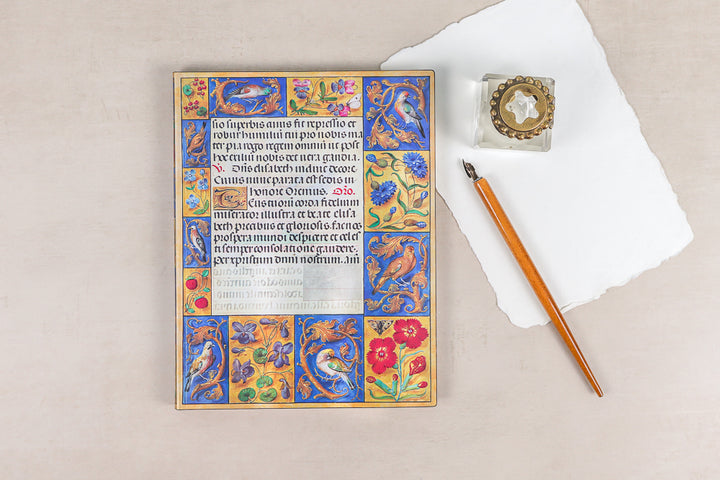 sio superbis cuius fit repressio et
robur humiliū cui pro nobis ma
ter pia rege regem omniū ut post
hoc exiliū nobis det vera gaudia.
V. Dñs elisabeth induit decore
Cuius nunc parata est sedis in
honore Oremus. Oro.
Eus tuorū corda fidelium
miserator illustra et beate elisa
beth precibus et gloriosis. fac nos
prospera mundi despicere et celes
ti semper consolatione gaudere.
Per xpristum dnm nostrum. am